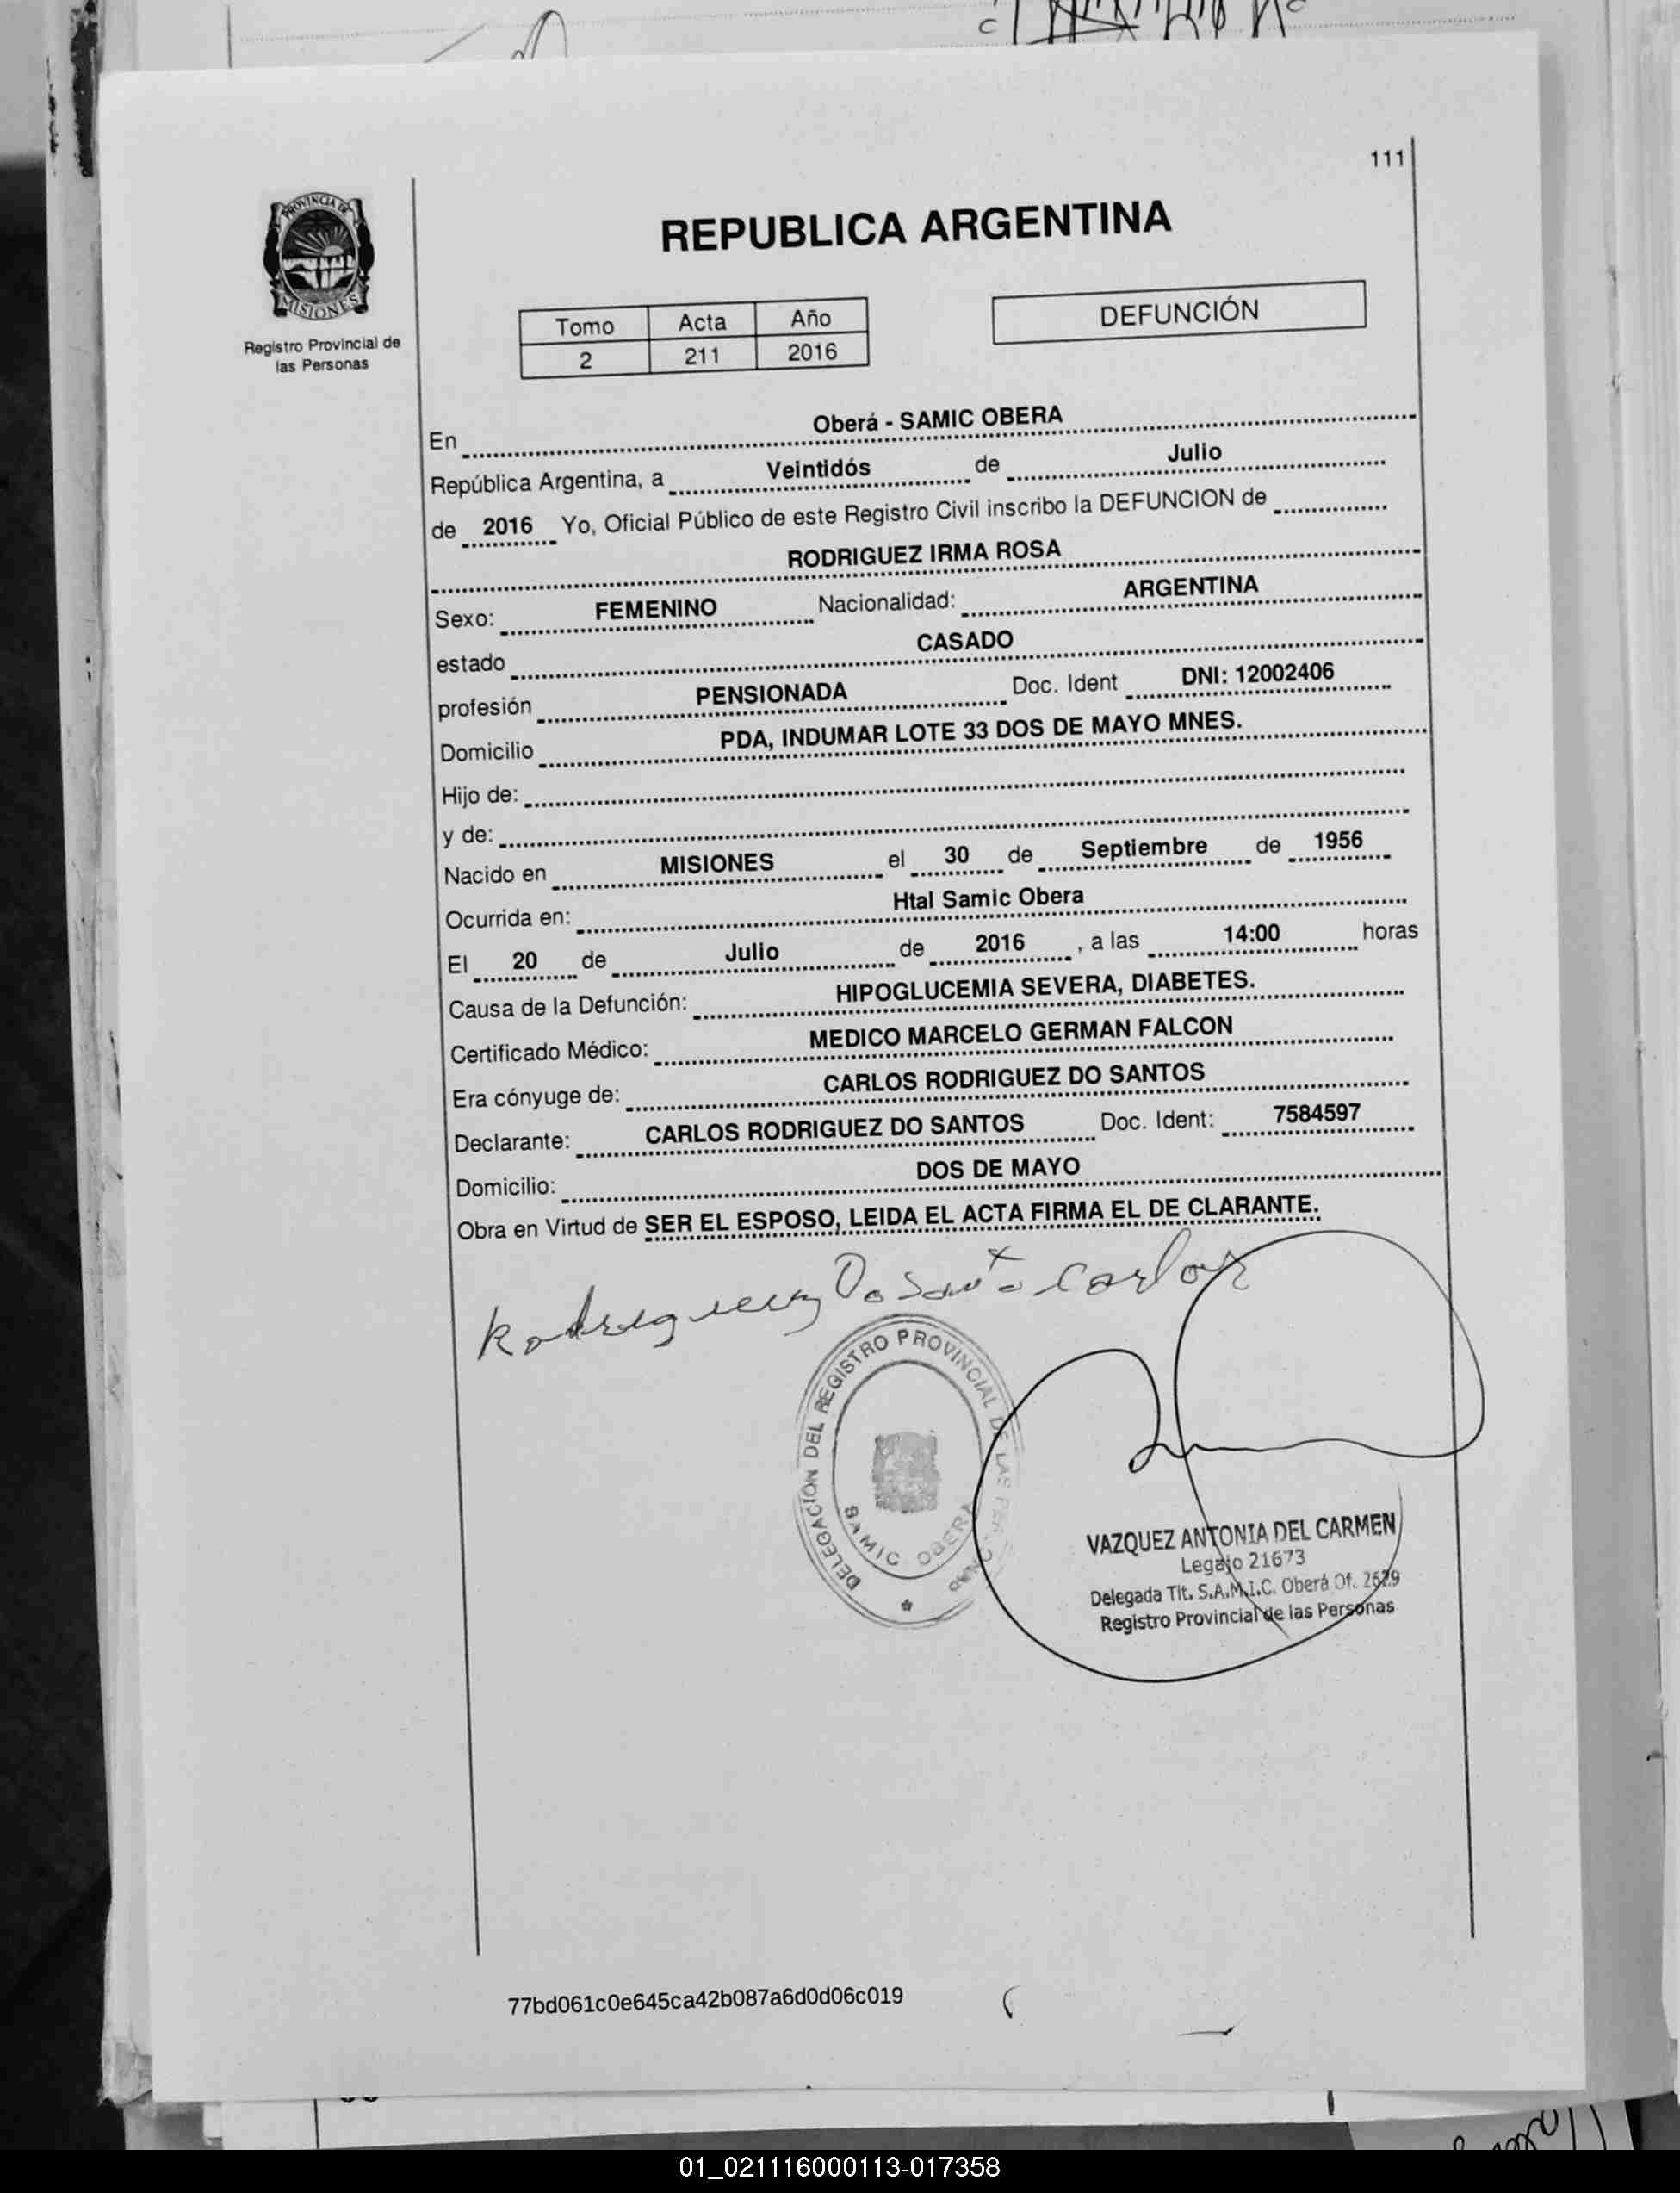 111
PROVINCIA DE
MISIONES
Registro Provincial de
las Personas
REPUBLICA ARGENTINA
Tomo Acta Año
2 211 2016
DEFUNCIÓN
En Oberá - SAMIC OBERA
República Argentina, a Veintidós de Julio
de 2016 Yo, Oficial Público de este Registro Civil inscribo la DEFUNCION de
RODRIGUEZ IRMA ROSA
Sexo: FEMENINO Nacionalidad: ARGENTINA
estado CASADO
profesión PENSIONADA Doc. Ident DNI: 12002406
Domicilio PDA, INDUMAR LOTE 33 DOS DE MAYO MNES.
Hijo de:
y de:
Nacido en MISIONES el 30 de Septiembre de 1956
Ocurrida en: Htal Samic Obera
El 20 de Julio de 2016 , a las 14:00 horas
Causa de la Defunción: HIPOGLUCEMIA SEVERA, DIABETES.
Certificado Médico: MEDICO MARCELO GERMAN FALCON
Era cónyuge de: CARLOS RODRIGUEZ DO SANTOS
Declarante: CARLOS RODRIGUEZ DO SANTOS Doc. Ident: 7584597
Domicilio: DOS DE MAYO
Obra en Virtud de SER EL ESPOSO, LEIDA EL ACTA FIRMA EL DE CLARANTE.
Rodriguez Do Santo Carlos
DELEGACION DEL REGISTRO PROVINCIAL DE LAS
SAMIC OBERA
VAZQUEZ ANTONIA DEL CARMEN
Legajo 21673
Delegada Tit. S.A.M.I.C. Oberá Of. 2629
Registro Provincial de las Personas
77bd061c0e645ca42b087a6d0d06c019
01_021116000113-017358